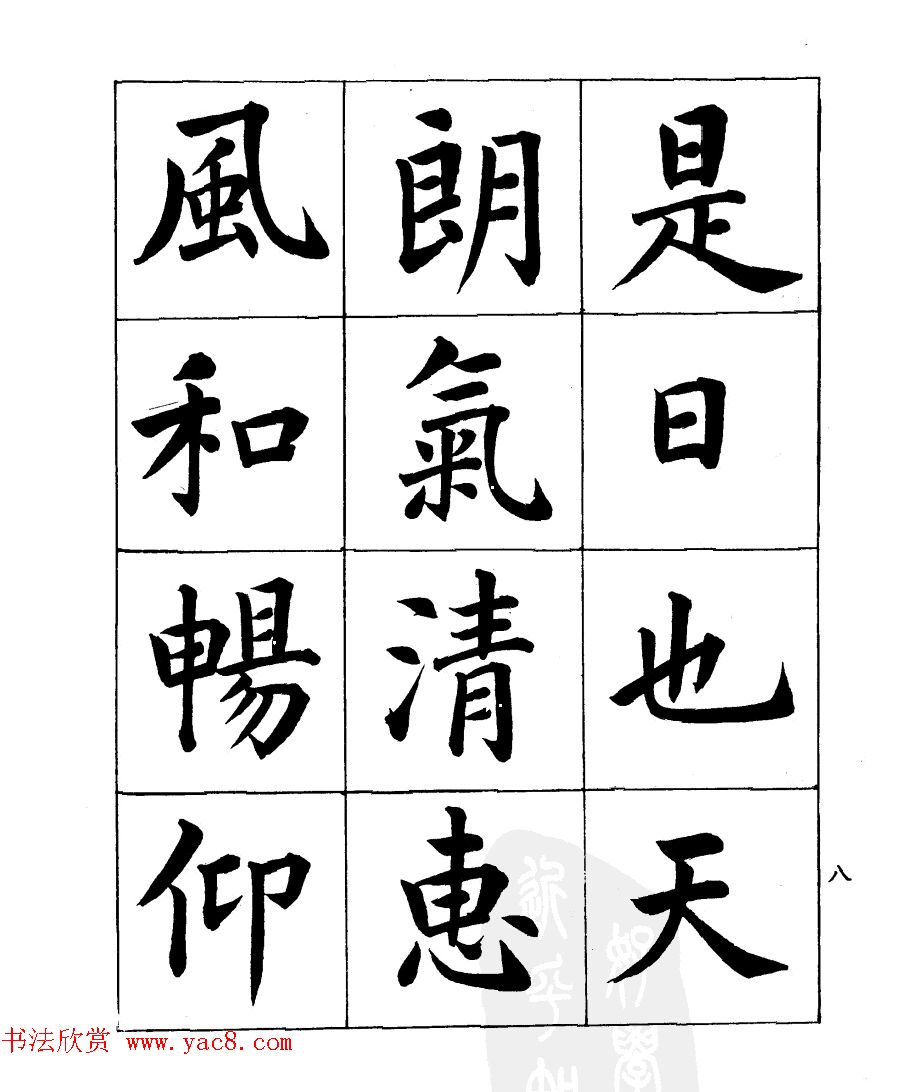 是日也天
朗氣清惠
風和暢仰
八
书法欣赏 www.yac8.com